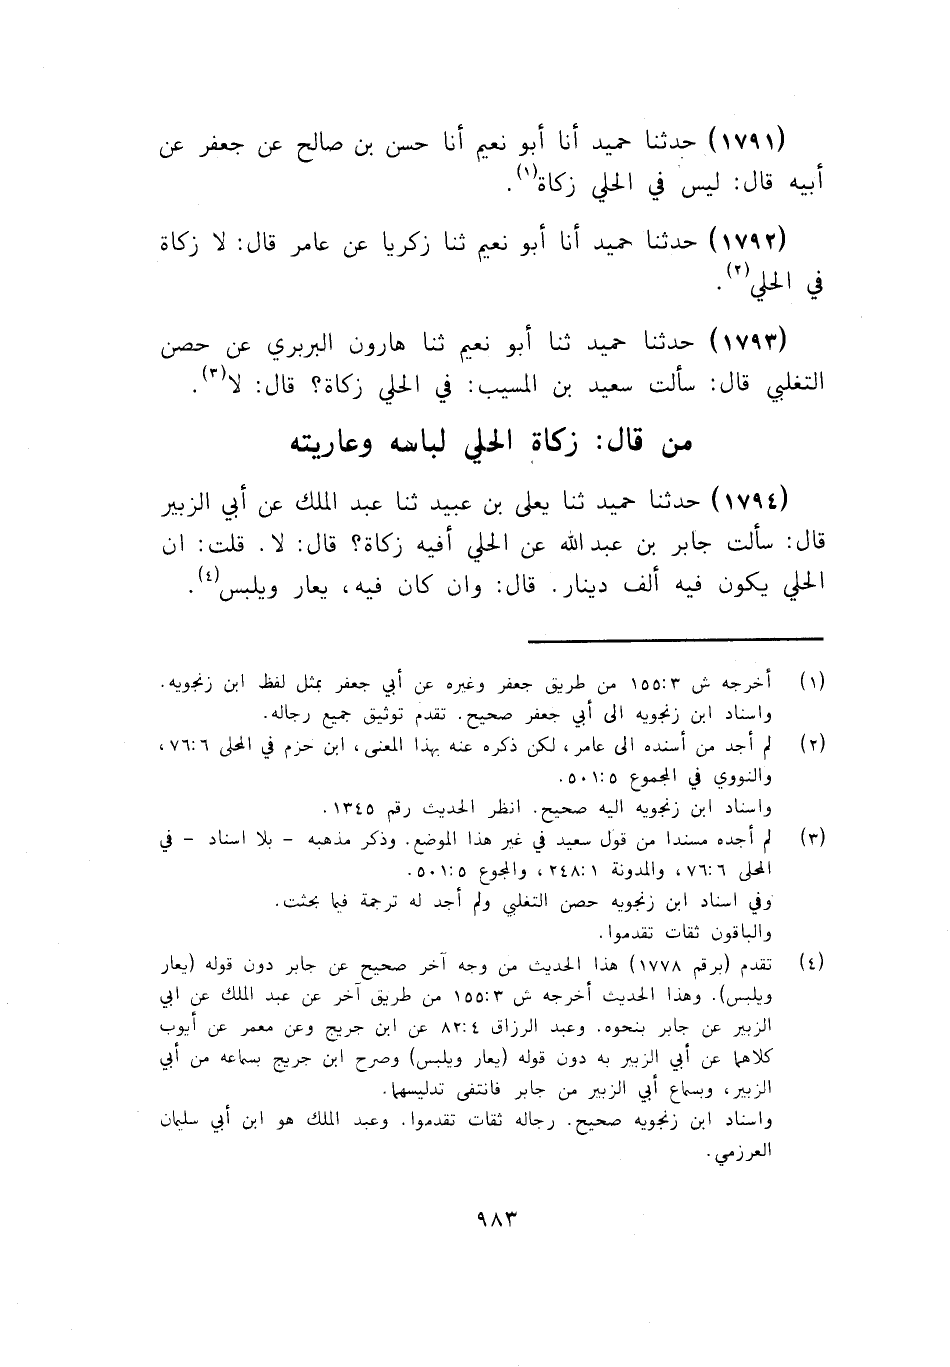 (١٧٩١) حدثنا حميد أنا أبو نعيم أنا حسن بن صالح عن جعفر عن
أبيه قال: ليس في الحلي زكاة(١).
(١٧٩٢) حدثنا حميد أنا أبو نعيم ثنا زكريا عن عامر قال: لا زكاة
في الحلي(٢).
(١٧٩٣) حدثنا حميد ثنا أبو نعيم ثنا هارون البربري عن حصن
التغلبي قال: سألت سعيد بن المسيب: في الحلي زكاة؟ قال: لا(٣).
من قال: زكاة الحلي لباسه وعاريته
(١٧٩٤) حدثنا حميد ثنا يعلى بن عبيد ثنا عبد الملك عن أبي الزبير
قال: سألت جابر بن عبد الله عن الحلي أفيه زكاة؟ قال: لا. قلت: ان
الحلي يكون فيه ألف دينار. قال: وان كان فيه، يعار ويلبس(٤).
(١) أخرجه ش ٣:١٥٥ من طريق جعفر وغيره عن أبي جعفر بمثل لفظ ابن زنجويه.
واسناد ابن زنجويه الى أبي جعفر صحيح. تقدم توثيق جميع رجاله.
(٢) لم أجد من أسنده الى عامر، لكن ذكره عنه بهذا المعنى، ابن حزم في المحلى ٦:٧٦،
والنووي في المجموع ٥:٥٠١.
واسناد ابن زنجويه اليه صحيح. انظر الحديث رقم ١٣٤٥.
(٣) لم أجده مسندا من قول سعيد في غير هذا الموضع. وذكر مذهبه - بلا اسناد - في
المحلى ٦:٧٦، والمدونة ١:٢٤٨، والمجوع ٥:٥٠١.
وفي اسناد ابن زنجويه حصن التغلبي ولم أجد له ترجمة فيما بحثت.
والباقون ثقات تقدموا.
(٤) تقدم (برقم ١٧٧٨) هذا الحديث من وجه آخر صحيح عن جابر دون قوله (يعار
ويلبس). وهذا الحديث أخرجه ش ٣:١٥٥ من طريق آخر عن عبد الملك عن ابي
الزبير عن جابر بنحوه. وعبد الرزاق ٤:٨٢ عن ابن جريج وعن معمر عن أيوب
كلاهما عن أبي الزبير به دون قوله (يعار ويلبس) وصرح ابن جريج بسماعه من أبي
الزبير، وبسماع أبي الزبير من جابر فانتفى تدليسهما.
واسناد ابن زنجويه صحيح. رجاله ثقات تقدموا. وعبد الملك هو ابن أبي سليمان
العرزمي.
٩٨٣